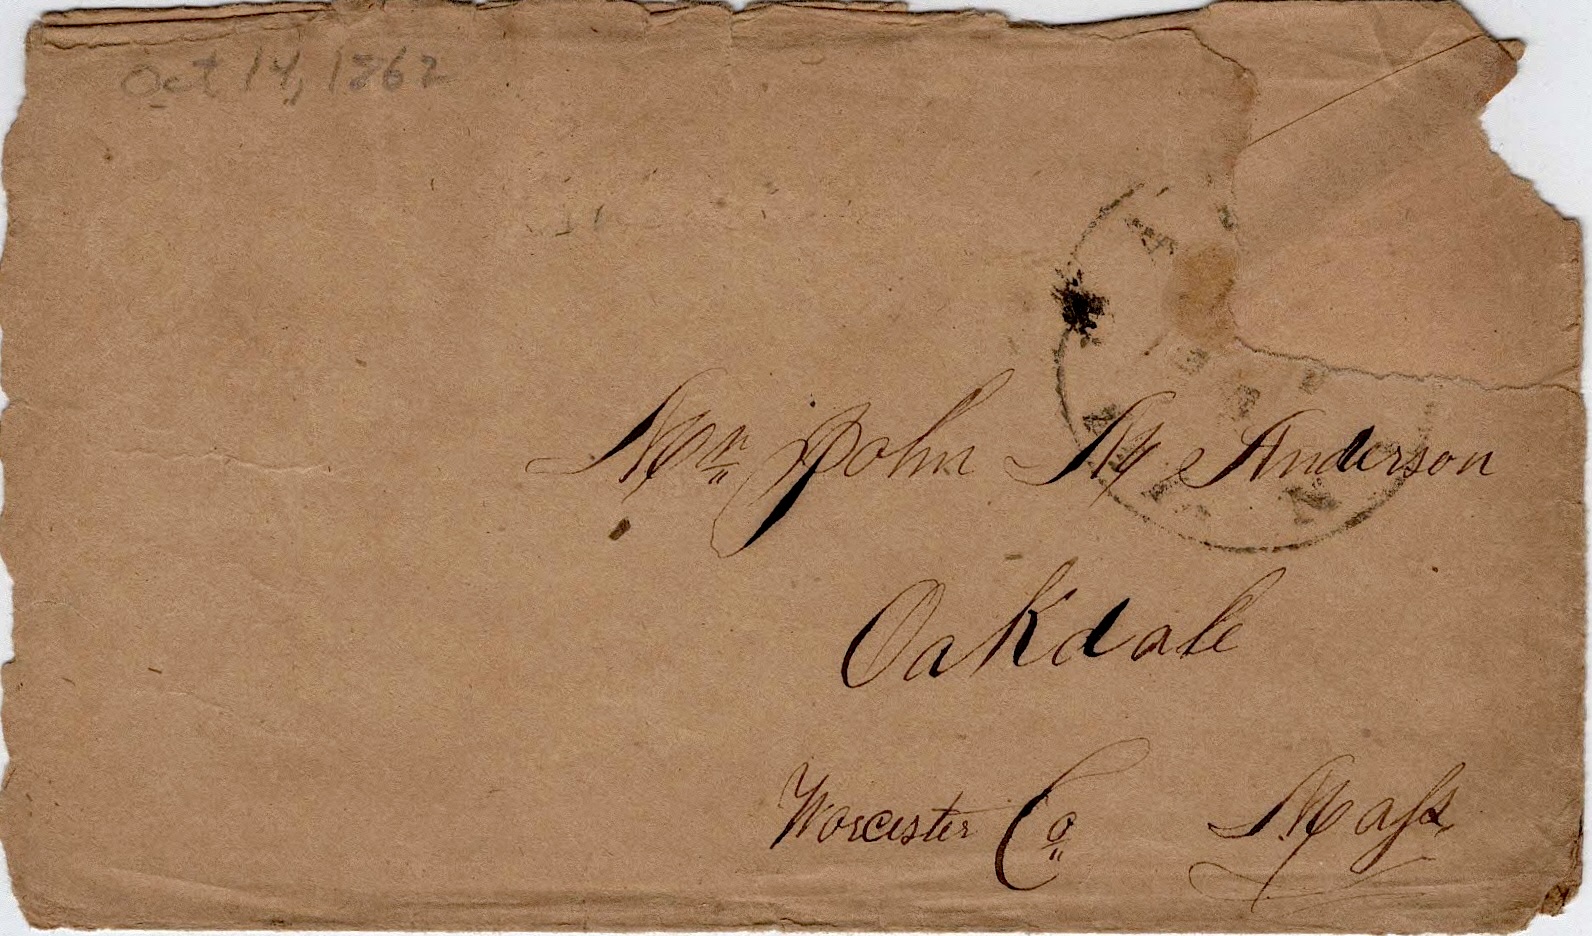 Oct 14, 1862
Mr John M Anderson
Oakdale
Worcester Co Mass